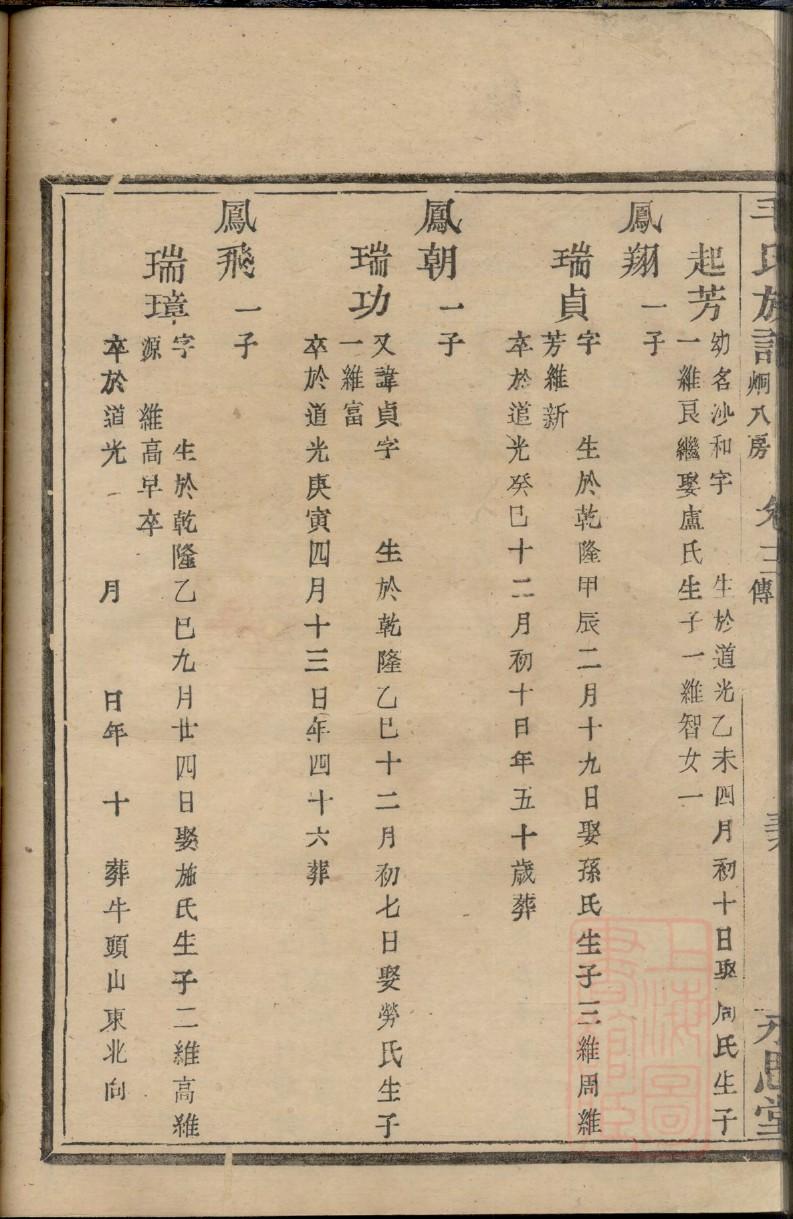 毛氏族譜 炯八房 卷三 傳 永思堂
起芳 幼名沙和字 生於道光乙未四月初十日娶周氏生子
一維良繼娶盧氏生子一維智女一
鳳翔 一子
瑞貞 字 生於乾隆甲辰二月十九日娶孫氏生子三維周維
芳維新
卒於道光癸巳十二月初十日年五十歲葬
鳳朝 一子
瑞功 又諱貞字 生於乾隆乙巳十二月初七日娶勞氏生子
一維富
卒於道光庚寅四月十三日年四十六葬
鳳飛 一子
瑞璋 字 生於乾隆乙巳九月廿四日娶施氏生子二維高維
源 維高早卒
卒於道光 月 日年 十 葬牛頭山東北向
上海圖書館藏